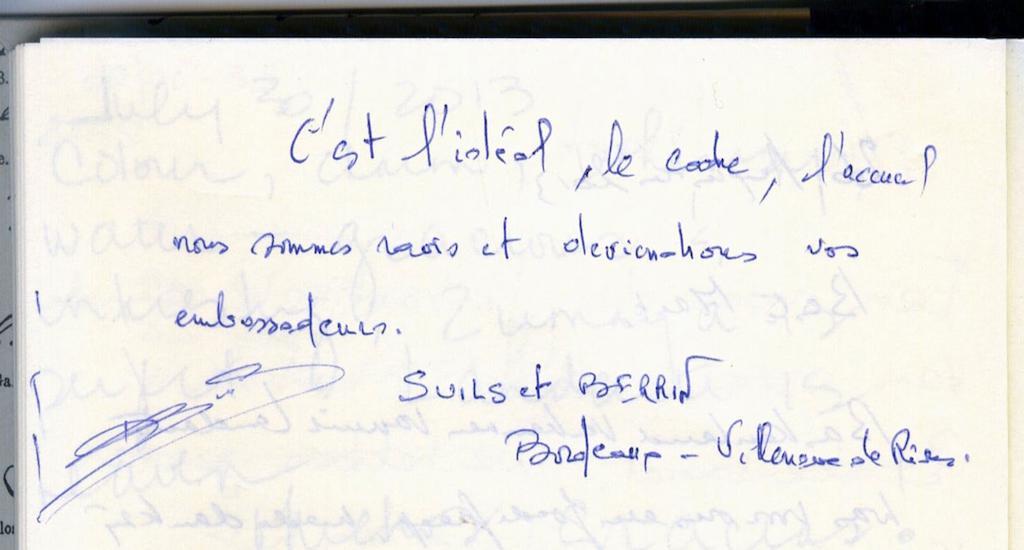 C'est l'idéal, le cadre, l'accueil
nous sommes ravis et deviendrons vos
embassadeurs.
SUILS et BERRIN
Bordeaux - Villeneuve de Rions.